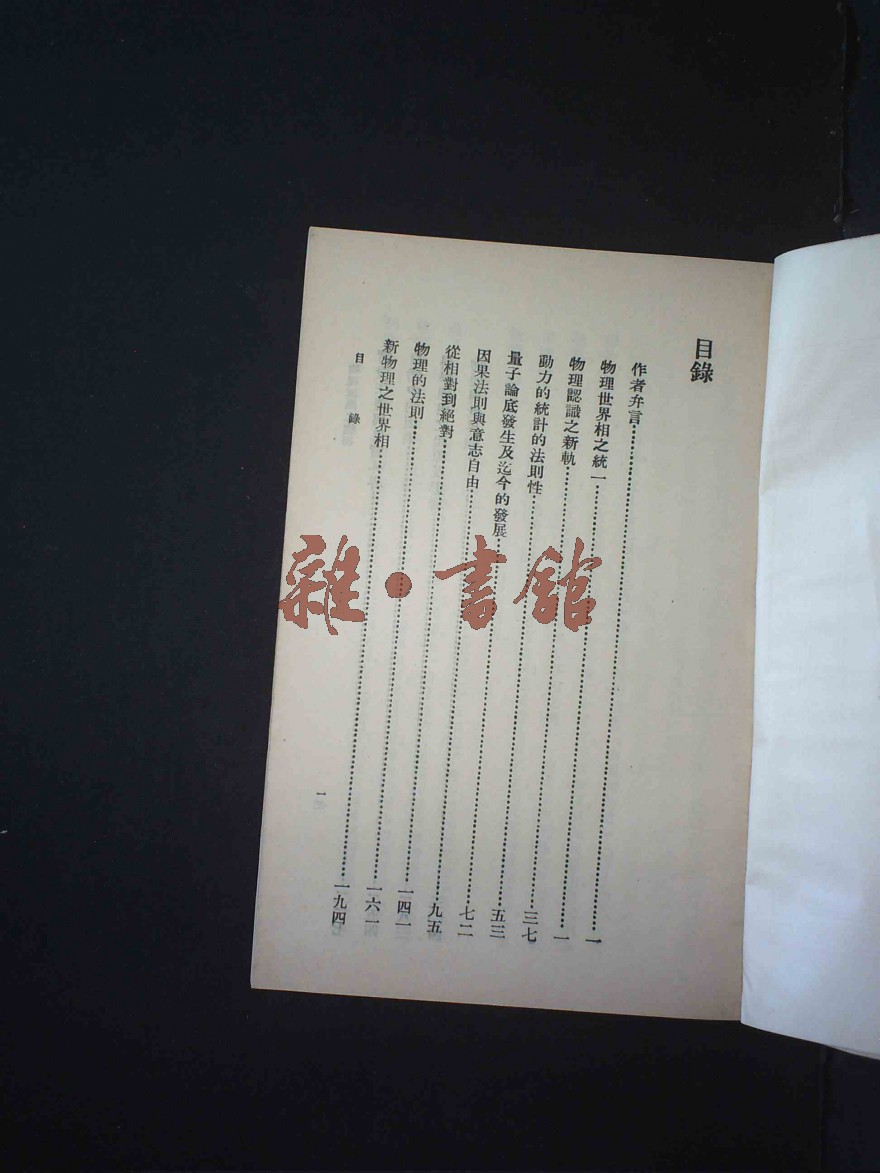 目錄
作者弁言……一
物理世界相之統一……一
物理認識之新軌……三七
動力的統計的法則性……五三
量子論底發生及迄今的發展……七二
因果法則與意志自由……九五
從相對到絕對……一四一
物理的法則……一六一
新物理之世界相……一九四
目錄 一
雜·書館